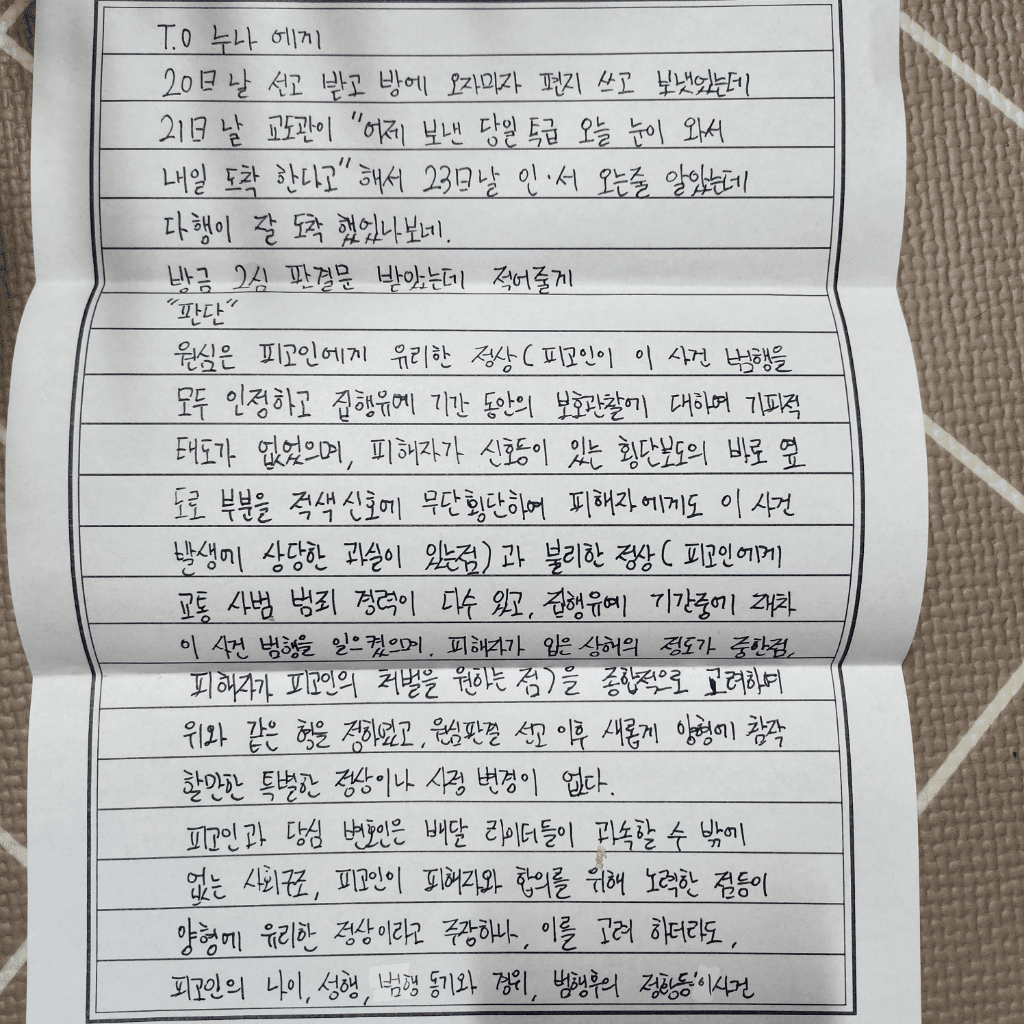 T.O 누나 에게
20日 날 선고 받고 방에 오자마자 편지 쓰고 보냇엇는데
21日 날 교도관이 "어제 보낸 당일특급 오늘 눈이 와서
내일 도착 한다고" 해서 23日날 인·서 오는줄 알았는데
다행이 잘 도착 했었나보네.
방금 2심 판결문 받았는데 적어줄게
"판단"
원심은 피고인에게 유리한 정상( 피고인이 이 사건 범행을
모두 인정하고 집행유예 기간 동안의 보호관찰에 대하여 기피적
태도가 없었으며, 피해자가 신호등이 있는 횡단보도의 바로 옆
도로 부분을 적색신호에 무단횡단하여 피해자에게도 이 사건
발생에 상당한 과실이 있는점)과 불리한 정상( 피고인에게
교통 사범 범죄 경력이 다수 있고, 집행유예 기간중에 재차
이 사건 범행을 일으켰으며. 피해자가 입은 상해의 정도가 중한점,
피해자가 피고인의 처벌을 원하는 점)을 종합적으로 고려하며
위와 같은 형을 정하였고, 원심판결 선고 이후 새롭게 양형에 참작
할만한 특별한 정상이나 사정 변경이 없다.
피고인과 당심 변호인은 배달 라이더들이 과속할 수 밖에
없는 사회구조, 피고인이 피해자와 합의를 위해 노력한 점등이
양형에 유리한 정상이라고 주장하나, 이를 고려 하더라도,
피고인의 나이, 성행, 범행동기와 경위, 범행후의 정황등 이사건